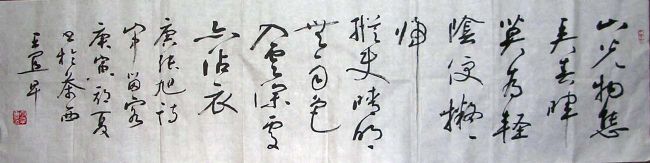 山光物態
弄春暉
莫為輕
陰便擬
歸
縱使晴明
無雨色
入雲深處
亦沾衣
唐張旭詩
山中留客
庚寅初夏
書於
王宜早